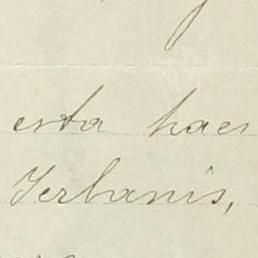 esta haes
Yerbanis,